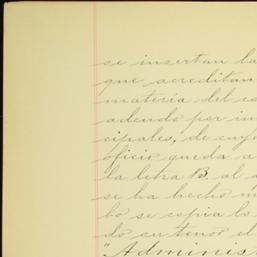 se insertan la
que acreditan
materia del es
adendo por in
cipales, de cuy
oficio queda a
la letra B. al a
se ha hecho m
bo se copia la
do su tenor el
"Adminis